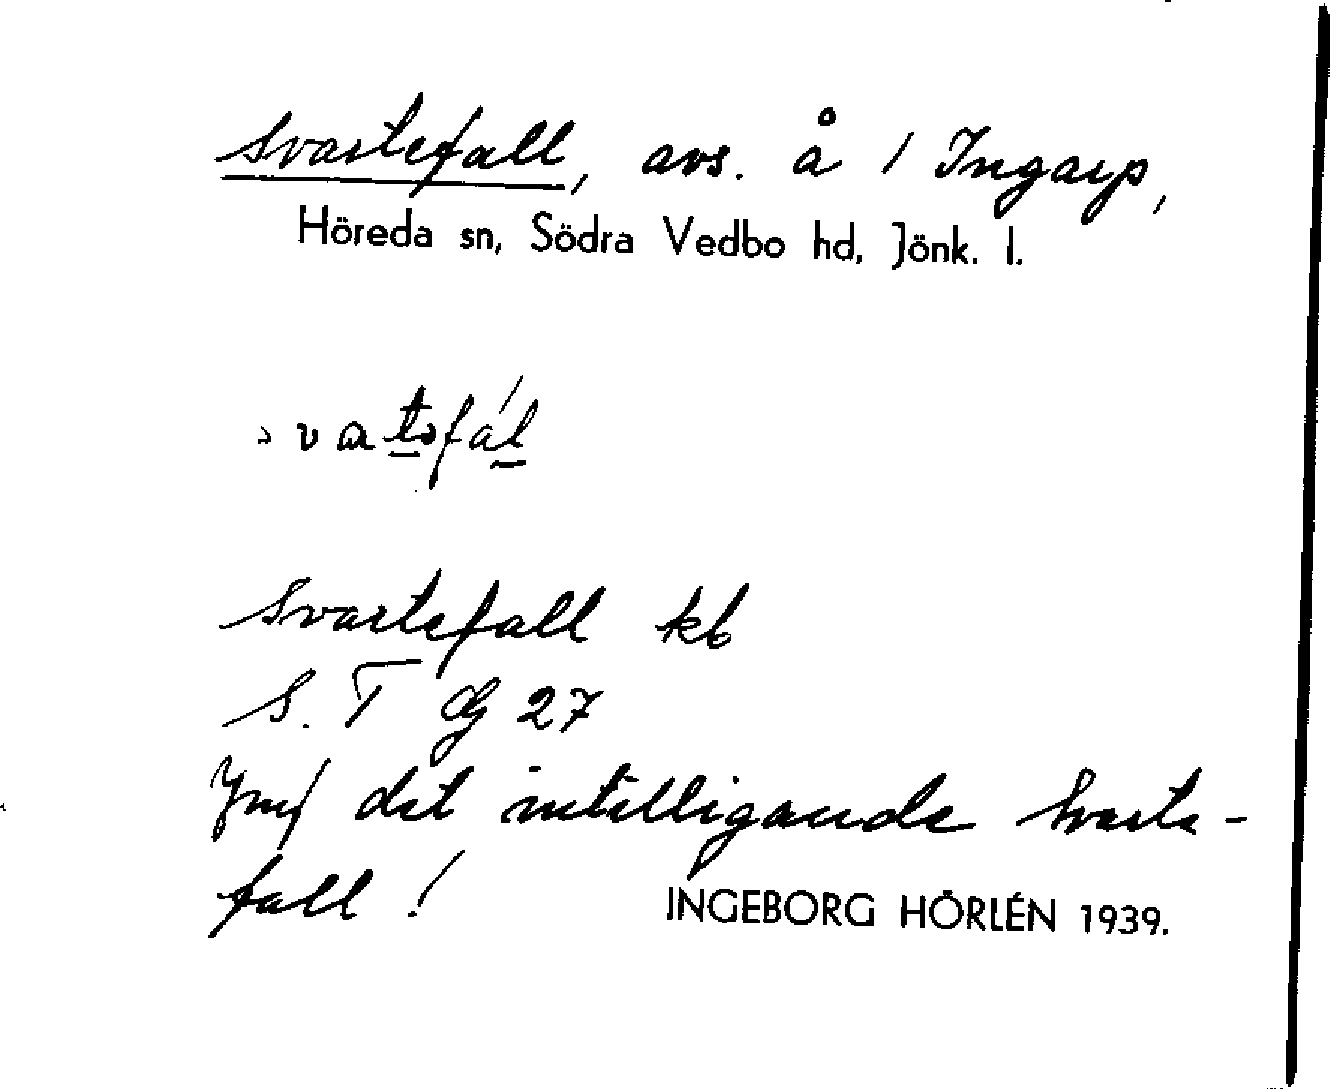 Svartefall, avs. å / Ingarp,
Höreda sn, Södra Vedbo hd, Jönk. l.
svatəfál
Svartefall kb
S. T Cg 27
Jmf det intilligande Svarte-
fall!
INGEBORG HÖRLÉN 1939.